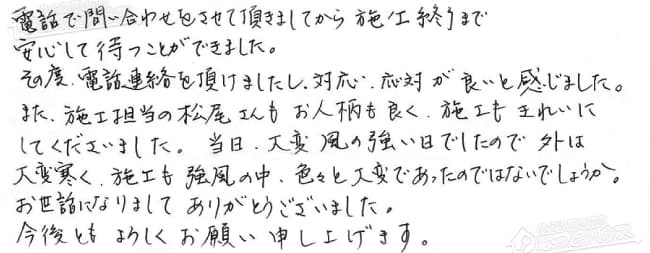 電話で問い合わせをさせて頂きましてから施工終了まで
安心して待つことができました。
その度、電話連絡を頂けましたし、対応、応対が良いと感じました。
また、施工担当の松尾さんもお人柄も良く、施工もきれいに
してくださいました。当日、大変風の強い日でしたので外は
大変寒く、施工も強風の中、色々と大変であったのではないでしょうか。
お世話になりましてありがとうございました。
今後ともよろしくお願い申し上げます。